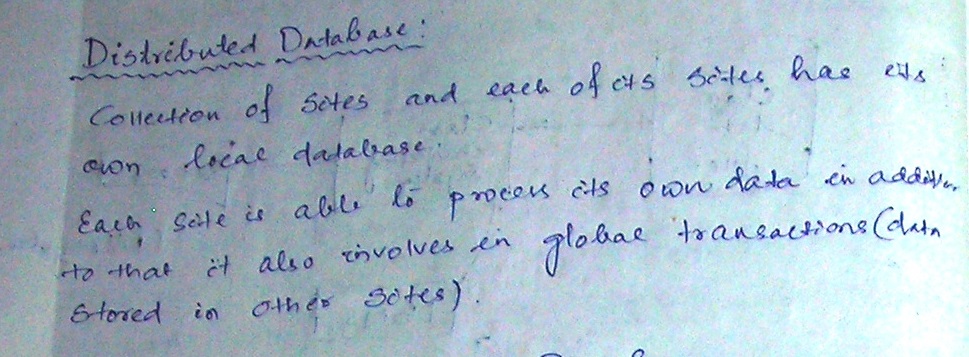 Distributed Database:
Collection of Sites and each of its Sites has its
own local database.
Each Site is able to process its own data in addition
to that it also involves in global transactions (data
Stored in other Sites).